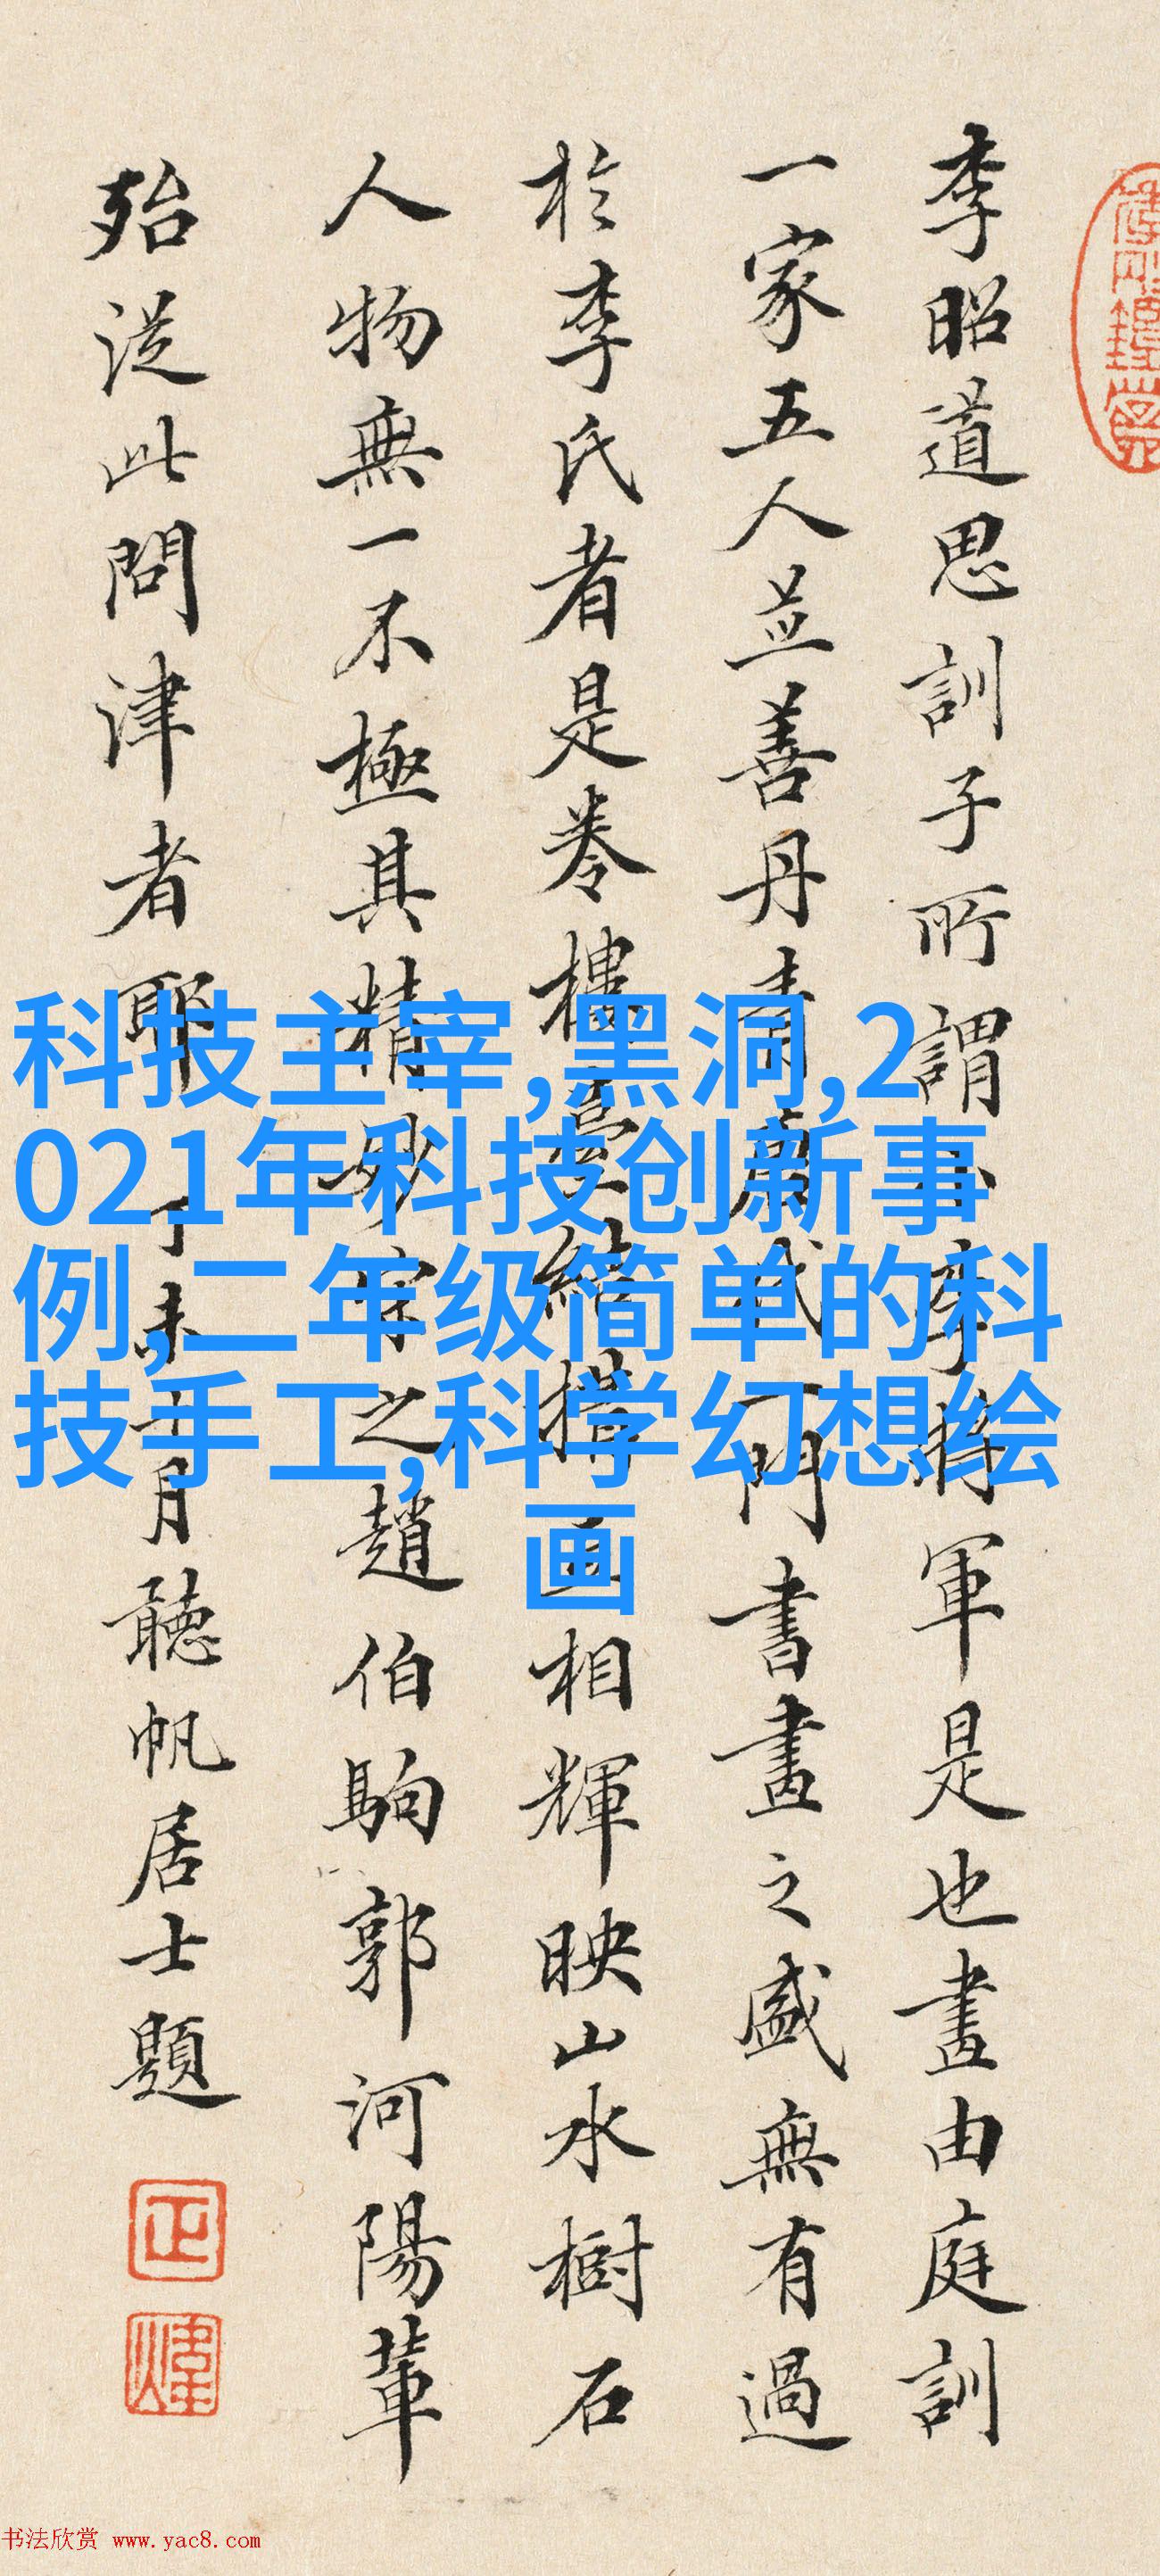 李昭道思訓子所謂小李將軍是也畫由庭訓
一家五人並善丹青唐代一門書畫之盛無有過
於李氏者是卷樓臺結構互相輝映山水樹石
人物無一不極其精妙宋之趙伯駒郭河陽輩
殆從此問津者耶丁未十月聽帆居士題
科技主宰,黑洞,2
021年科技创新事
例,二年级简单的科
技手工,科学幻想绘
画
书法欣赏 www.yac8.com